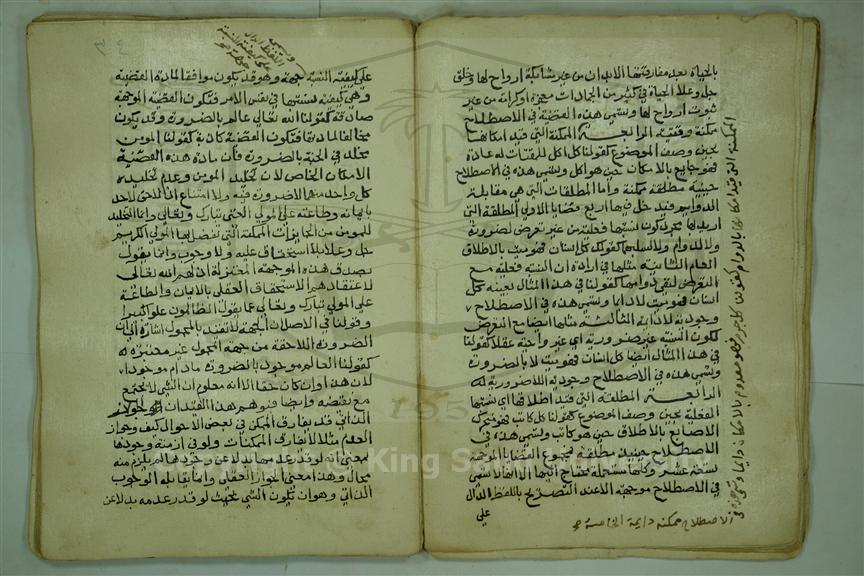 بالحياة بعد مفارقتها الابدان من غير مشابكة ارواح لها وخلق
جل وعلا الحياة في كثير من الجمادات معجزة او كرامة من غير
ثبوت ارواح لها وتسمي هذه القضية في الاصطلاح
ممكنة وقتية الرابعة الممكنة التي قيد امكانها
بحين وصف الموضوع كقولنا كل اكل للمقتات له عادة
فهو جايع بالامكان حين هو اكل وتسمي هذه في الاصطلاح
حينية مطلقة ممكنة واما المطلقات التي هي مقابلة
الدوايم فيدخل فيها اربع قضايا الاولي المطلقة التي
اريد بها مجرد كون نسبتها فعلية من غير تعرض لضرورة
ولا لدوام ولا لسلبهما كقولك كل انسان فهو ميت بالاطلاق
العام الثانية مثلها في ارادة ان النسبة فعلية مع
التعرض لنفي دوامها كقولنا في هذا المثال بعينه كل
انسان فهو ميت لا دايما وتسمي هذه في الاصطلاح
وجودية لا دايمة الثالثة مثلها ايضا مع التعرض
لكون النسبة غير ضرورية اي غير واجبة عقلا كقولنا
في هذا المثال ايضا كل انسان فهو ميت لا بالضرورة
وتسمي هذه في الاصطلاح وجودية لا ضرورية
الرابعة المطلقة التي قيد اطلاقها اي نسبتها
الفعلية بحين وصف الموضوع كقولنا كل كاتب فهو متحرك
الاصابع بالاطلاق حين هو كاتب وتسمي هذه في
الاصطلاح حينية مطلقة فمجموع القضايا الموجهة
ستة عشر وكلها مستعملة محتاج اليها الا انها لا تسمي
في الاصطلاح موجهة الا عند التصريح باللفظ الدال
علي
الممكنة التي قيد امكانها بالدوام كقولنا كل جرم فهو معدوم بالامكان دايما وتسمي هذه في
الاصطلاح ممكنة دايمة الخامسة صح
وتسمي
اللفظ الدال
علي كيفية النسبة
جهة صح
علي كيفية النسبة جهة وهو قد يكون موافقا لمادة القضية
وهي كيفية نسبتها في نفس الامر فتكون القضية الموجهة
صادقة كقولنا الله تعالي عالم بالضرورة وقد يكون
مخالفا لمادتها فتكون القضية كاذبة كقولنا المومن
مخلد في الجنة بالضرورة فان مادة هذه القضية
الامكان الخاص لان تخليد المومن وعدم تخليده
كل واحد منهما لا ضرورة فيه ولا امتناع اذ لا حق لاحد
بايمانه وطاعته علي المولي الغني تبارك وتعالي وانما التخليد
للمومن من الجايزات الممكنة التي تفضل بها المولي الكريم
جل وعلا بلا استحقاق عليه ولا وجوب وانما يقول
بصدق هذه الموجهة المعتزلة اذلهم الله تعالي
لاعتقادهم الاستحقاق العقلي بالايمان والطاعة
علي المولي تبارك وتعالي عما يقول الظالمون علوا كبيرا
وقولنا في الاصل ان الجهة لا تقيد بالمحمول اشارة الي ان
الضرورة اللاحقة من جهة المحمول غير معتبرة
كقولنا العالم موجود بالضرورة ما دام موجودا
لان هذا وان كان حقا الا انه معلوم ان الشي لا يجتمع
مع نقيضه وايضا فتوهم هذا التقييد ان الجواز
الذاتي قد يفارق الممكن في بعض الاحوال كيف وجواز
العدم مثلا لا يفارق الممكنات ولو في ازمنة وجودها
بمعني انه لو قدر عدمها بدلا عن وجودها لم يلزم منه
محال وهذا معني الجواز العقلي وانما يقابله الوجوب
الذاتي وهو ان يكون الشي بحيث لو قدر عدمه بدلا عن